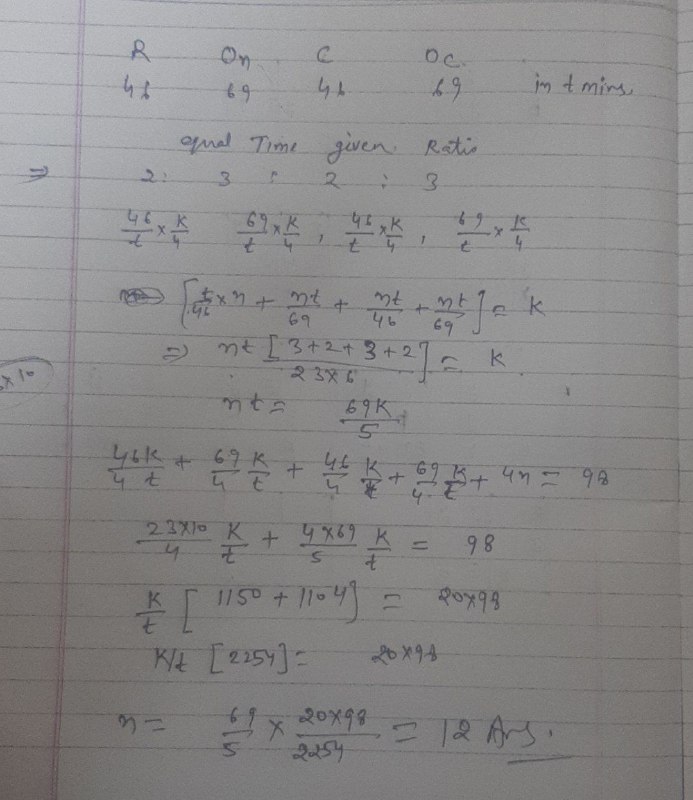 R On C OC
46 69 46 69 in t mins
equal Time given Ratio
⇒ 2 : 3 : 2 : 3
46/t × K/4 69/t × K/4 , 46/t × K/4 , 69/t × K/4
[t/46 × n + nt/69 + nt/46 + nt/69] = K
×10
⇒ nt [3+2+3+2 / 23×6] = K
nt = 69K/5
46K/4t + 69/4 K/t + 46/4 K/t + 69/4 K/t + 4n = 98
23×10/4 K/t + 4×69/5 K/t = 98
K/t [1150 + 1104] = 20×98
K/t [2254] = 20×98
n = 69/5 × 20×98/2254 = 12 Ans.